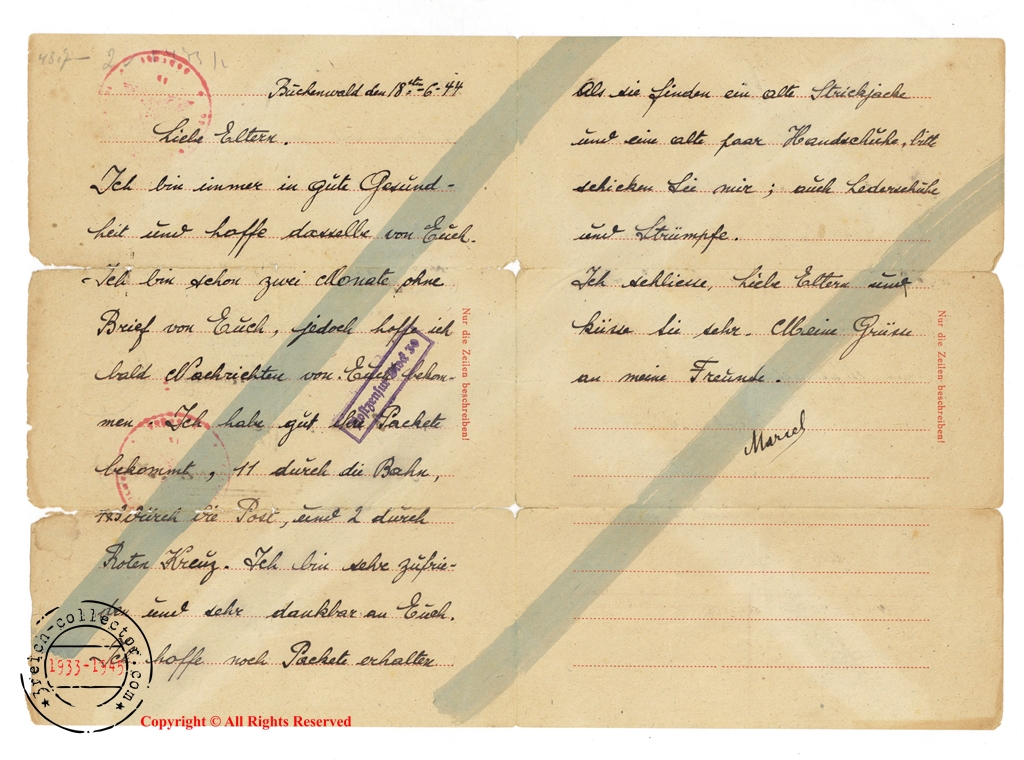 Buchenwald den 18ten-6-44
Liebe Eltern.
Ich bin immer in gute Gesund-
heit und hoffe dasselbe von Euch.
-Ich bin schon zwei Monate ohne
Brief von Euch, jedoch hoffe ich
bald Nachrichten von Euch bekom-
men. Ich habe gut Packete
bekommt, 11 durch die Bahn,
durch die Post, und 2 durch
Roten Kreuz. Ich bin sehr zufrie-
den und sehr dankbar an Euch.
hoffe noch Packete erhalten
Nur die Zeilen beschreiben!
Als sie finden ein alte Strickjacke
und eine alte paar Handschuhe, bitte
schicken Sie mir; auch Lederschuhe
und Strümpfe.
Ich schliesse, Liebe Eltern und
küsse Sie sehr. Meine Grüsse
an meine Freunde.
Marcel
Nur die Zeilen beschreiben!
3reich-collector.com
1933-1945
Copyright © All Rights Reserved